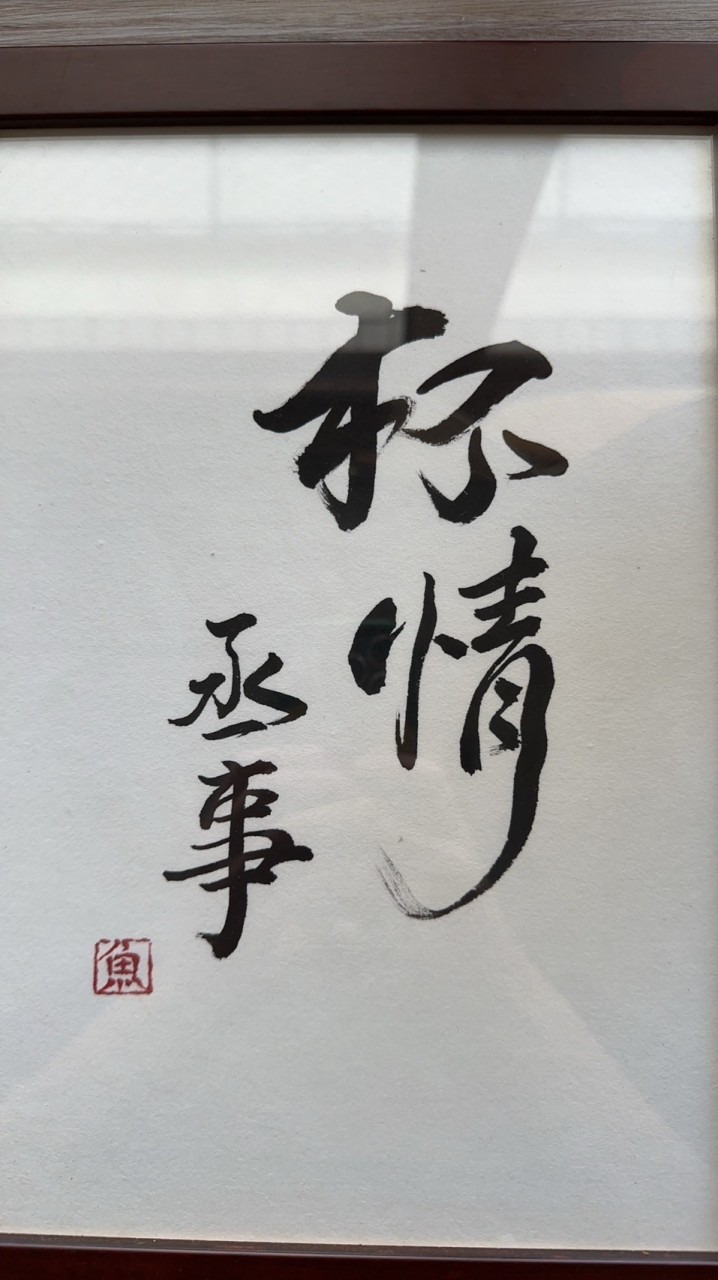 杯情
丞事
魚